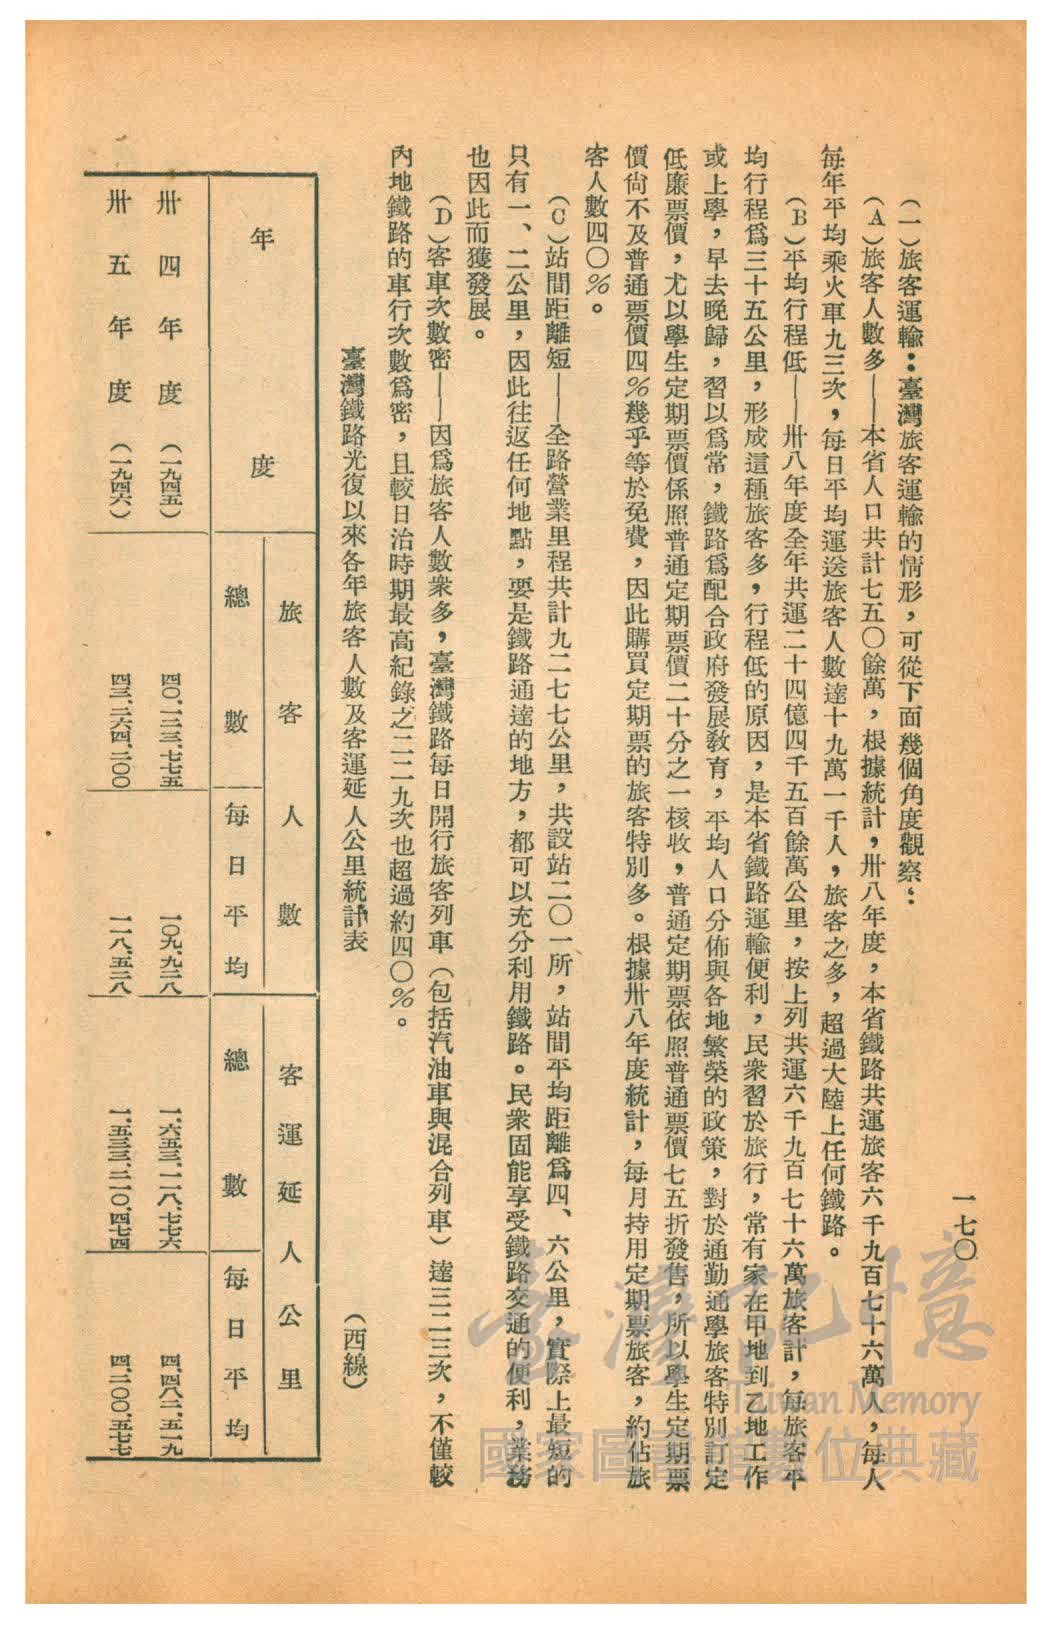 一七〇
（一）旅客運輸：臺灣旅客運輸的情形，可從下面幾個角度觀察：
（A）旅客人數多——本省人口共計七五〇餘萬，根據統計，卅八年度，本省鐵路共運旅客六千九百七十六萬人，每人
每年平均乘火車九三次，每日平均運送旅客人數達十九萬一千人，旅客之多，超過大陸上任何鐵路。
（B）平均行程低——卅八年度全年共運二十四億四千五百餘萬公里，按上列共運六千九百七十六萬旅客計，每旅客平
均行程爲三十五公里，形成這種旅客多，行程低的原因，是本省鐵路運輸便利，民衆習於旅行，常有家在甲地到乙地工作
或上學，早去晚歸，習以爲常，鐵路爲配合政府發展敎育，平均人口分佈與各地繁榮的政策，對於通勤通學旅客特別訂定
低廉票價，尤以學生定期票價係照普通定期票價二十分之一核收，普通定期票依照普通票價七五折發售，所以學生定期票
價尙不及普通票價四％幾乎等於免費，因此購買定期票的旅客特別多。根據卅八年度統計，每月持用定期票旅客，約佔旅
客人數四〇％。
（C）站間距離短——全路營業里程共計九二七七公里，共設站二〇一所，站間平均距離爲四、六公里，實際上最短的
只有一、二公里，因此往返任何地點，要是鐵路通達的地方，都可以充分利用鐵路。民衆固能享受鐵路交通的便利，業務
也因此而獲發展。
（D）客車次數密——因爲旅客人數衆多，臺灣鐵路每日開行旅客列車（包括汽油車與混合列車）達三二三次，不僅較
內地鐵路的車行次數爲密，且較日治時期最高紀錄之二二九次也超過約四〇％。
臺灣鐵路光復以來各年旅客人數及客運延人公里統計表
（西線）
年度
旅客人數
客運延人公里
總數
每日平均
總數
每日平均
卅四年度（一九四五）
四〇、一三三、七七五
一〇九、九二八
一、六五三、一二八、七七六
四、四八二、五一九
卅五年度（一九四六）
四三、二六四、二〇〇
一一八、五二八
一、五三三、二一〇、四七四
四、二〇〇、五七七
臺灣記憶
Taiwan Memory
國家圖書館數位典藏